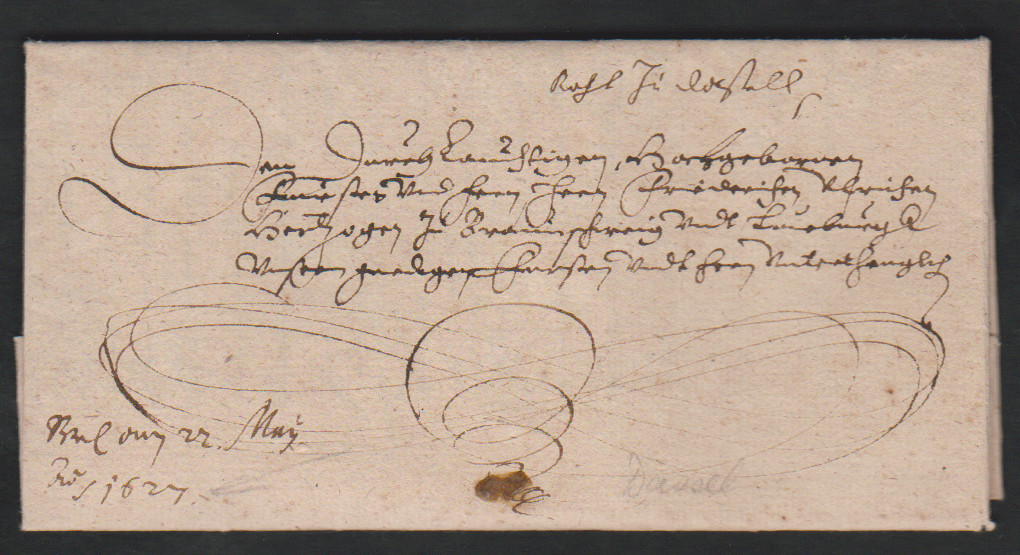 Raht Zu dassell
Den Durchlauchtigen, Hochgebornen
Fursten Vnd Hern Hern Friederichen Vlrichen
Hertzogen Zu Braunschweig vndt Luneburgk
Vnsern gnedigen Fursten vndt Hern Vnterthenglich
am 22. May
Aõ 1627.
Dassel